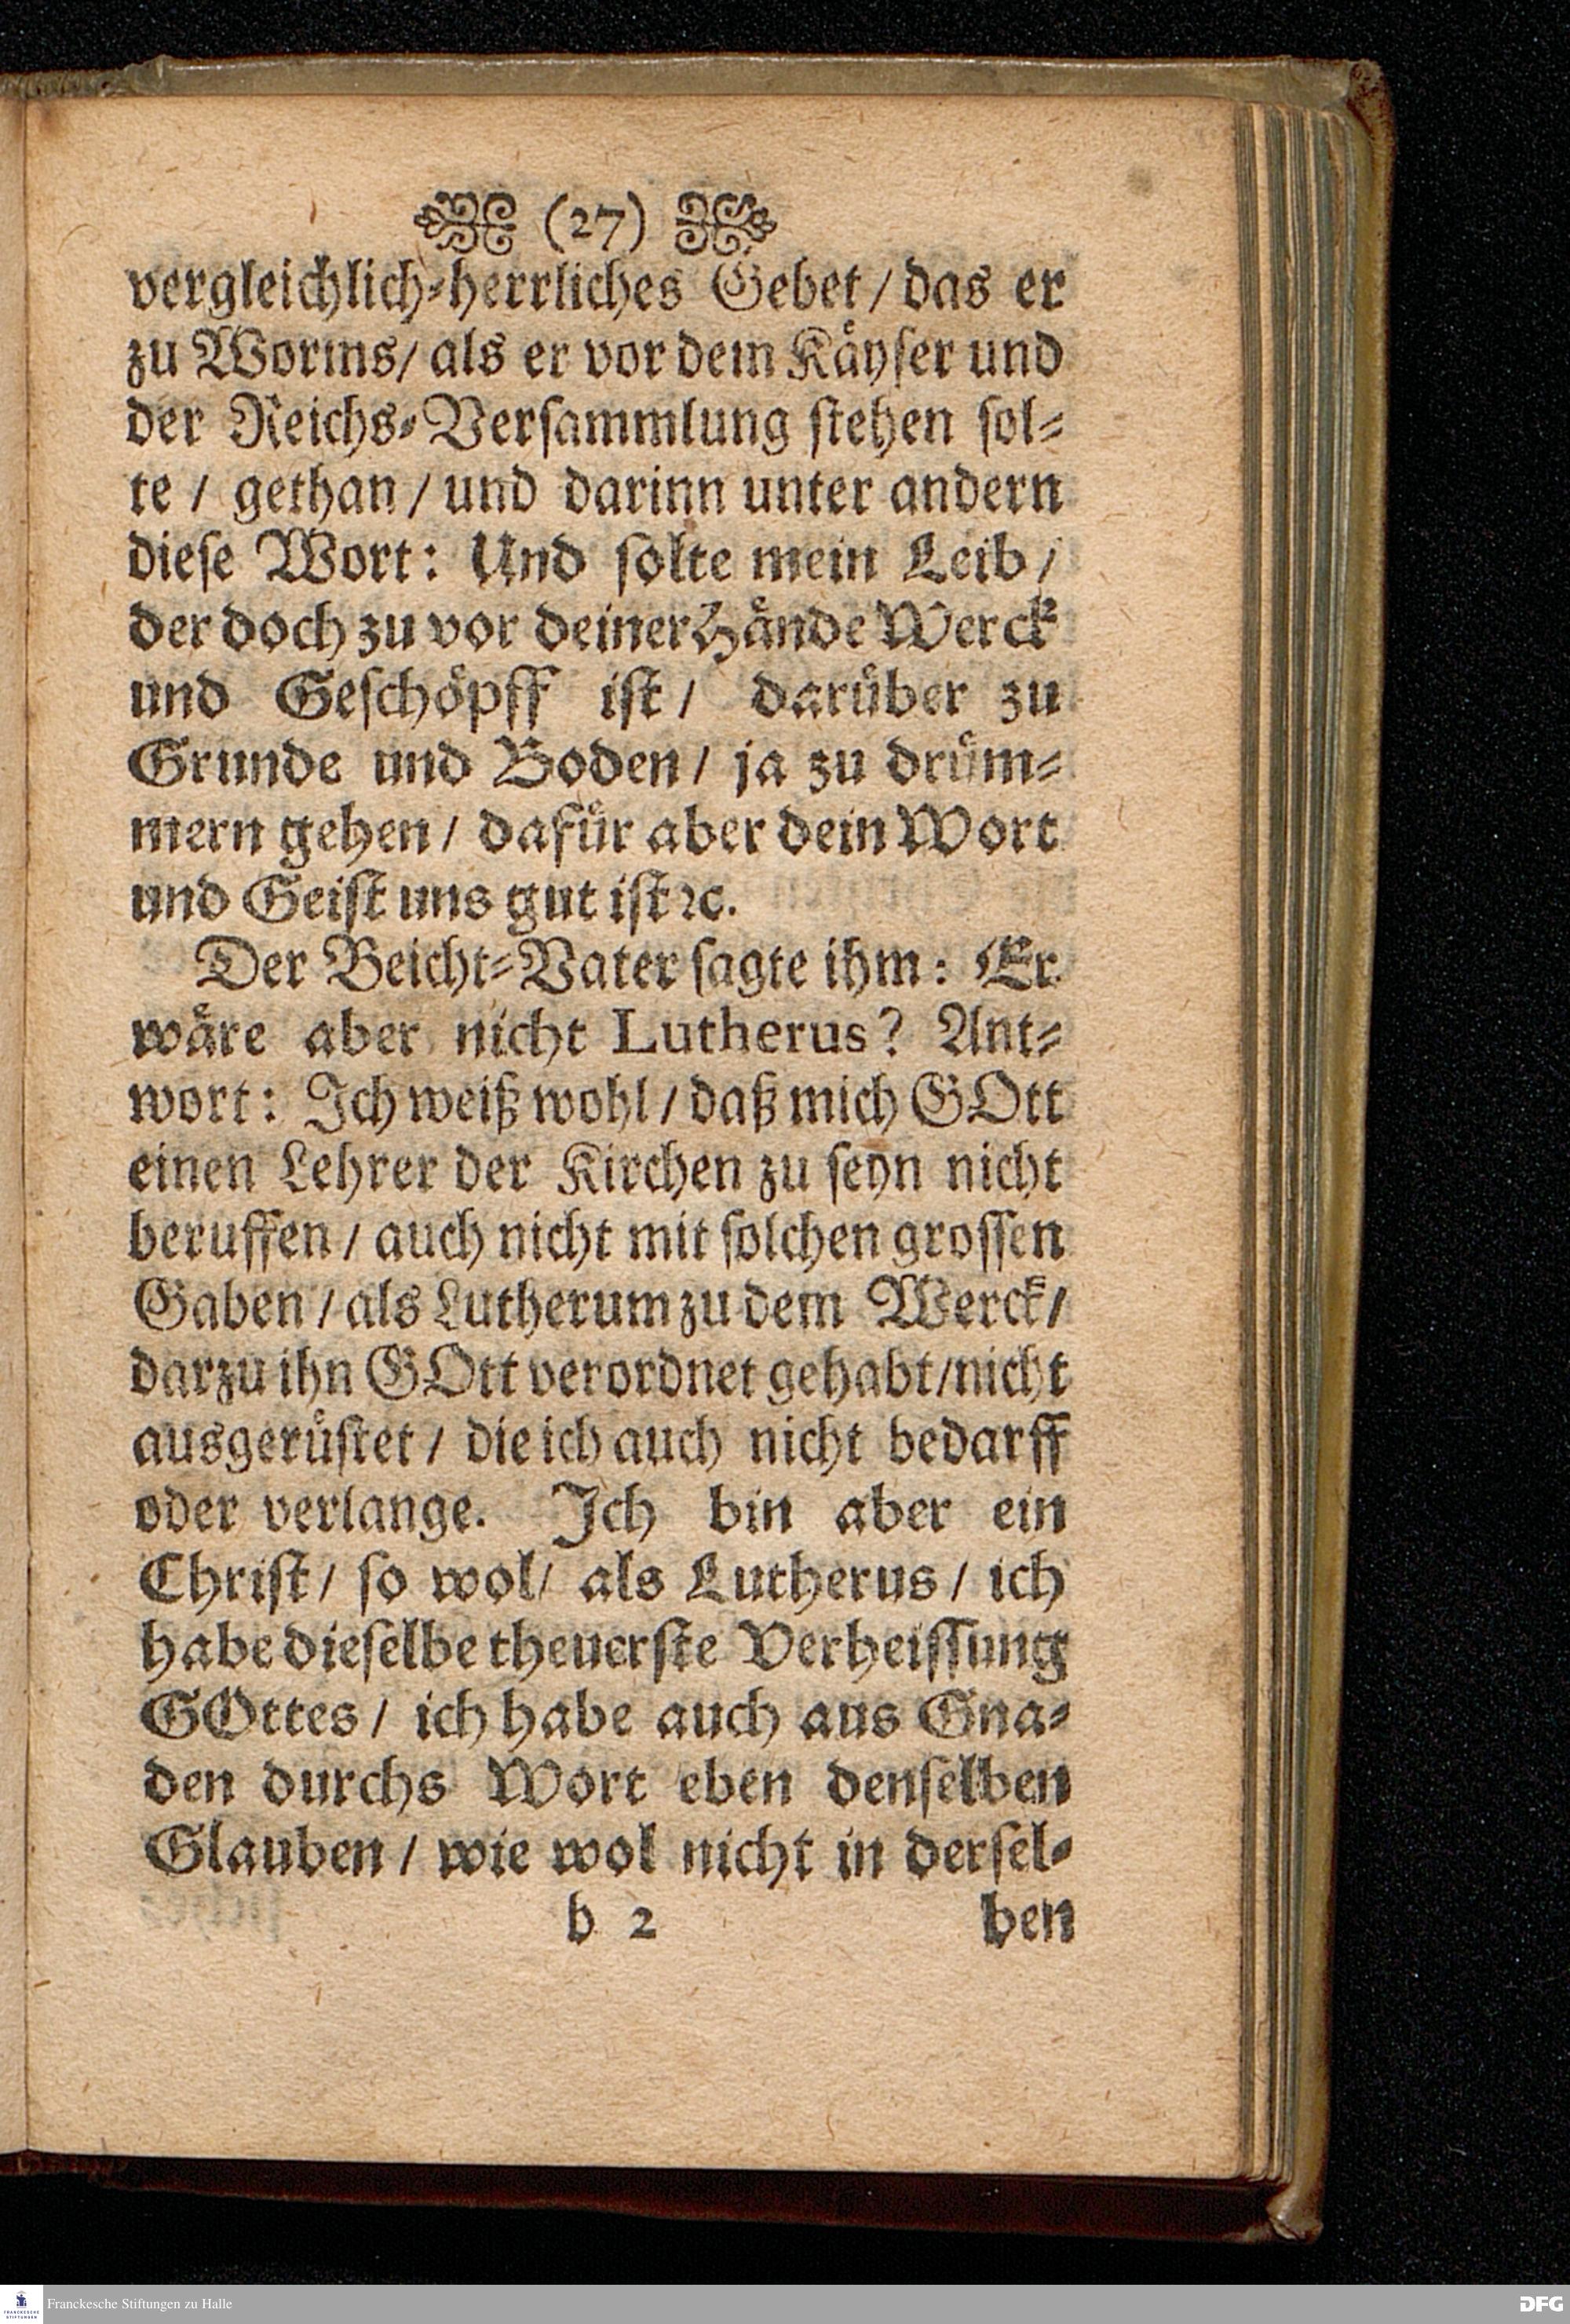 (27)
vergleichlich-herrliches Gebet / das er
zu Worms / als er vor dem Kåyſer und
der Reichs-Verſammlung ſtehen ſol-
te / gethan / und darinn unter andern
dieſe Wort: Und ſolte mein Leib /
der doch zu vor deiner Hånde Werck
und Geſchöpff iſt / darüber zu
Grunde und Boden / ja zu drům-
mern gehen / dafůr aber dein Wort
und Geiſt uns gut iſt ꝛc.
Der Beicht-Vater ſagte ihm: Er
wåre aber nicht Lutherus? Ant-
wort: Ich weiß wohl / daß mich GOtt
einen Lehrer der Kirchen zu ſeyn nicht
beruffen / auch nicht mit ſolchen groſſen
Gaben / als Lutherum zu dem Werck /
darzu ihn GOtt verordnet gehabt / nicht
ausgerůſtet / die ich auch nicht bedarff
oder verlange. Ich bin aber ein
Chriſt / ſo wol / als Lutherus / ich
habe dieſelbe theuerſte Verheiſſung
GOttes / ich habe auch aus Gna-
den durchs Wort eben denſelben
Glauben / wie wol nicht in derſel-
b 2 ben
Franckesche Stiftungen zu Halle
DFG